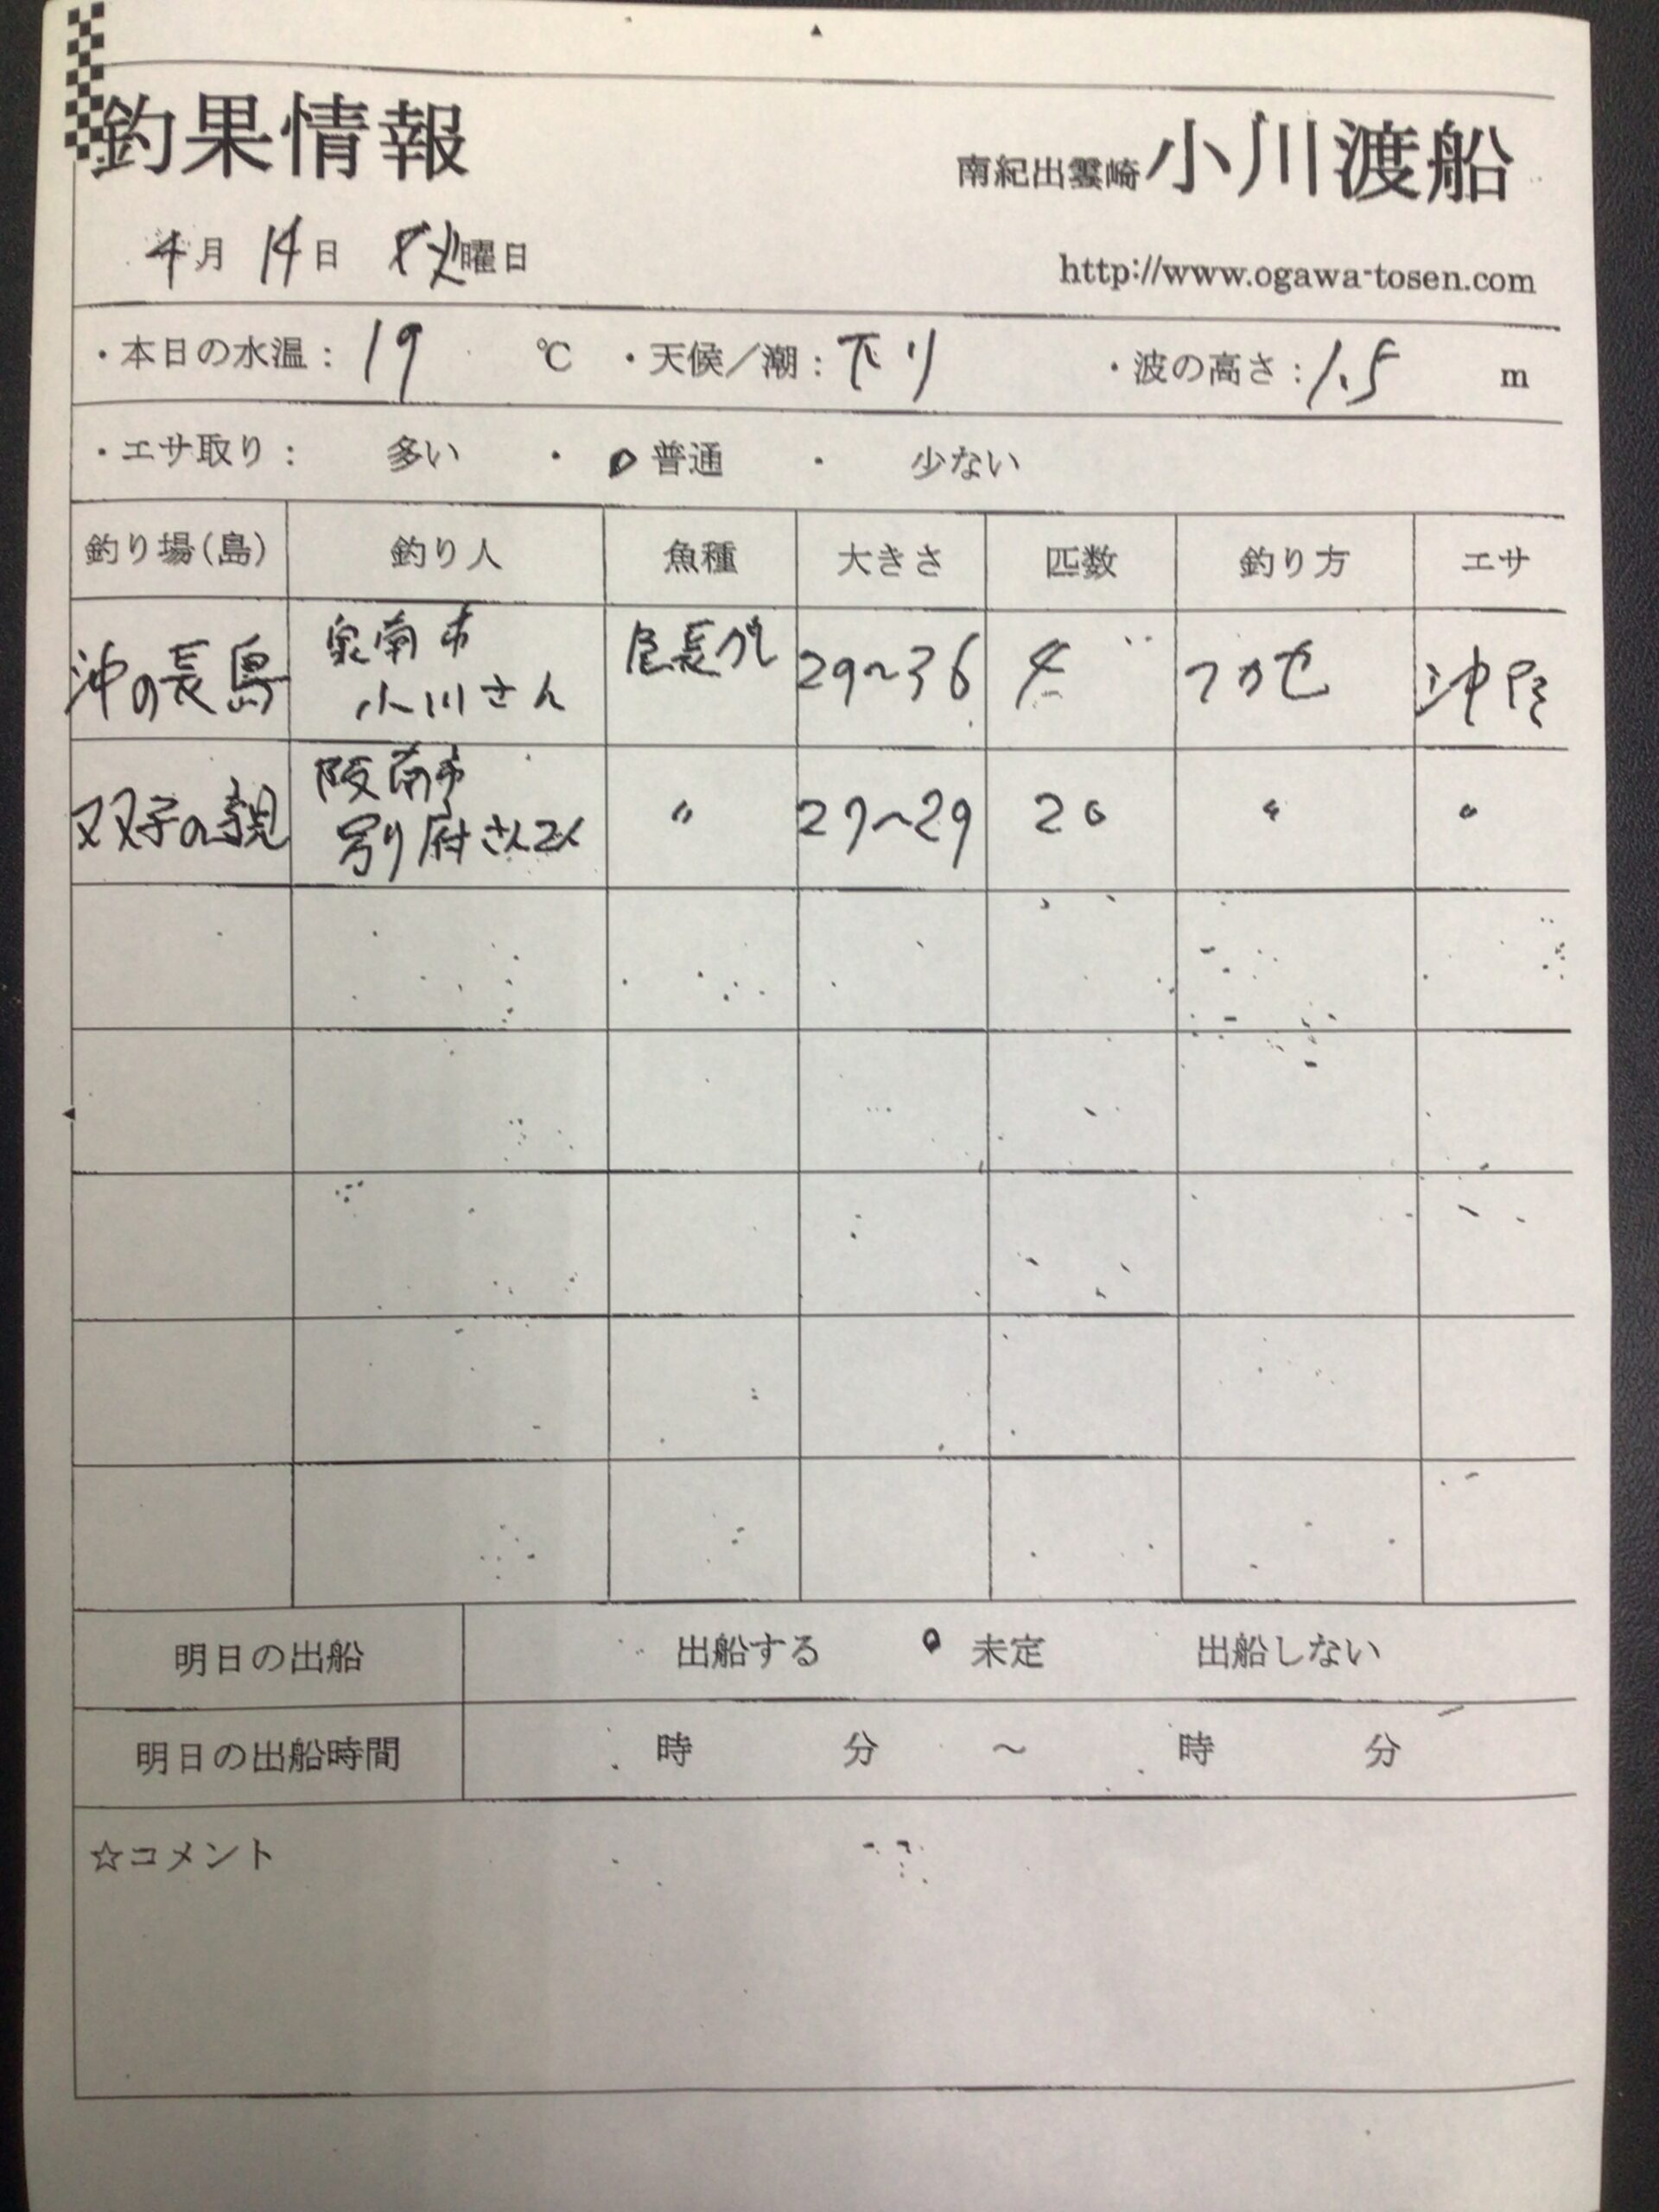 釣果情報
南紀出雲崎 小川渡船
4月 14日 火曜日
http://www.ogawa-tosen.com
・本日の水温: 19 ℃ ・天候/潮: 下り ・波の高さ: 1.5 m
・エサ取り: 多い ・ 普通 ・ 少ない
釣り場(島) 釣り人 魚種 大きさ 匹数 釣り方 エサ
沖の長島 泉南市 小川さん 尾長グレ 29~36 4 フカセ 沖アミ
双子の親 阪南市 別府さん2人 〃 27~29 20 〃 〃
明日の出船 出船する 未定 出船しない
明日の出船時間 時 分 ~ 時 分
☆コメント